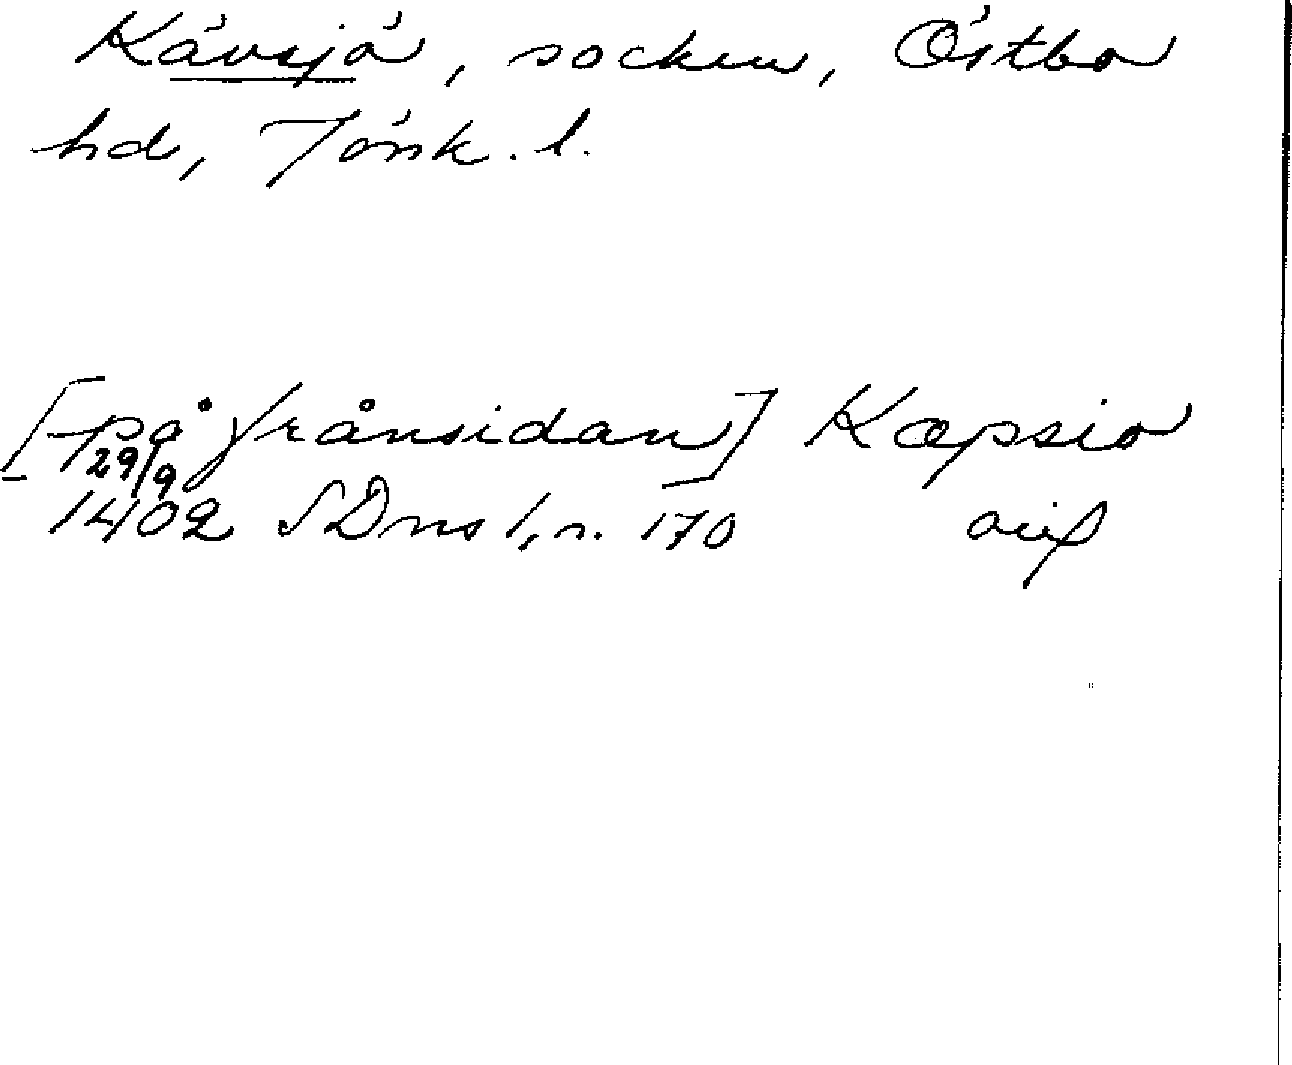 Kävsjö, socken, Östbo
hd, Jönk. l.
[på frånsidan] Kæpsio
29/9 1402 SDns 1, n. 170 avs